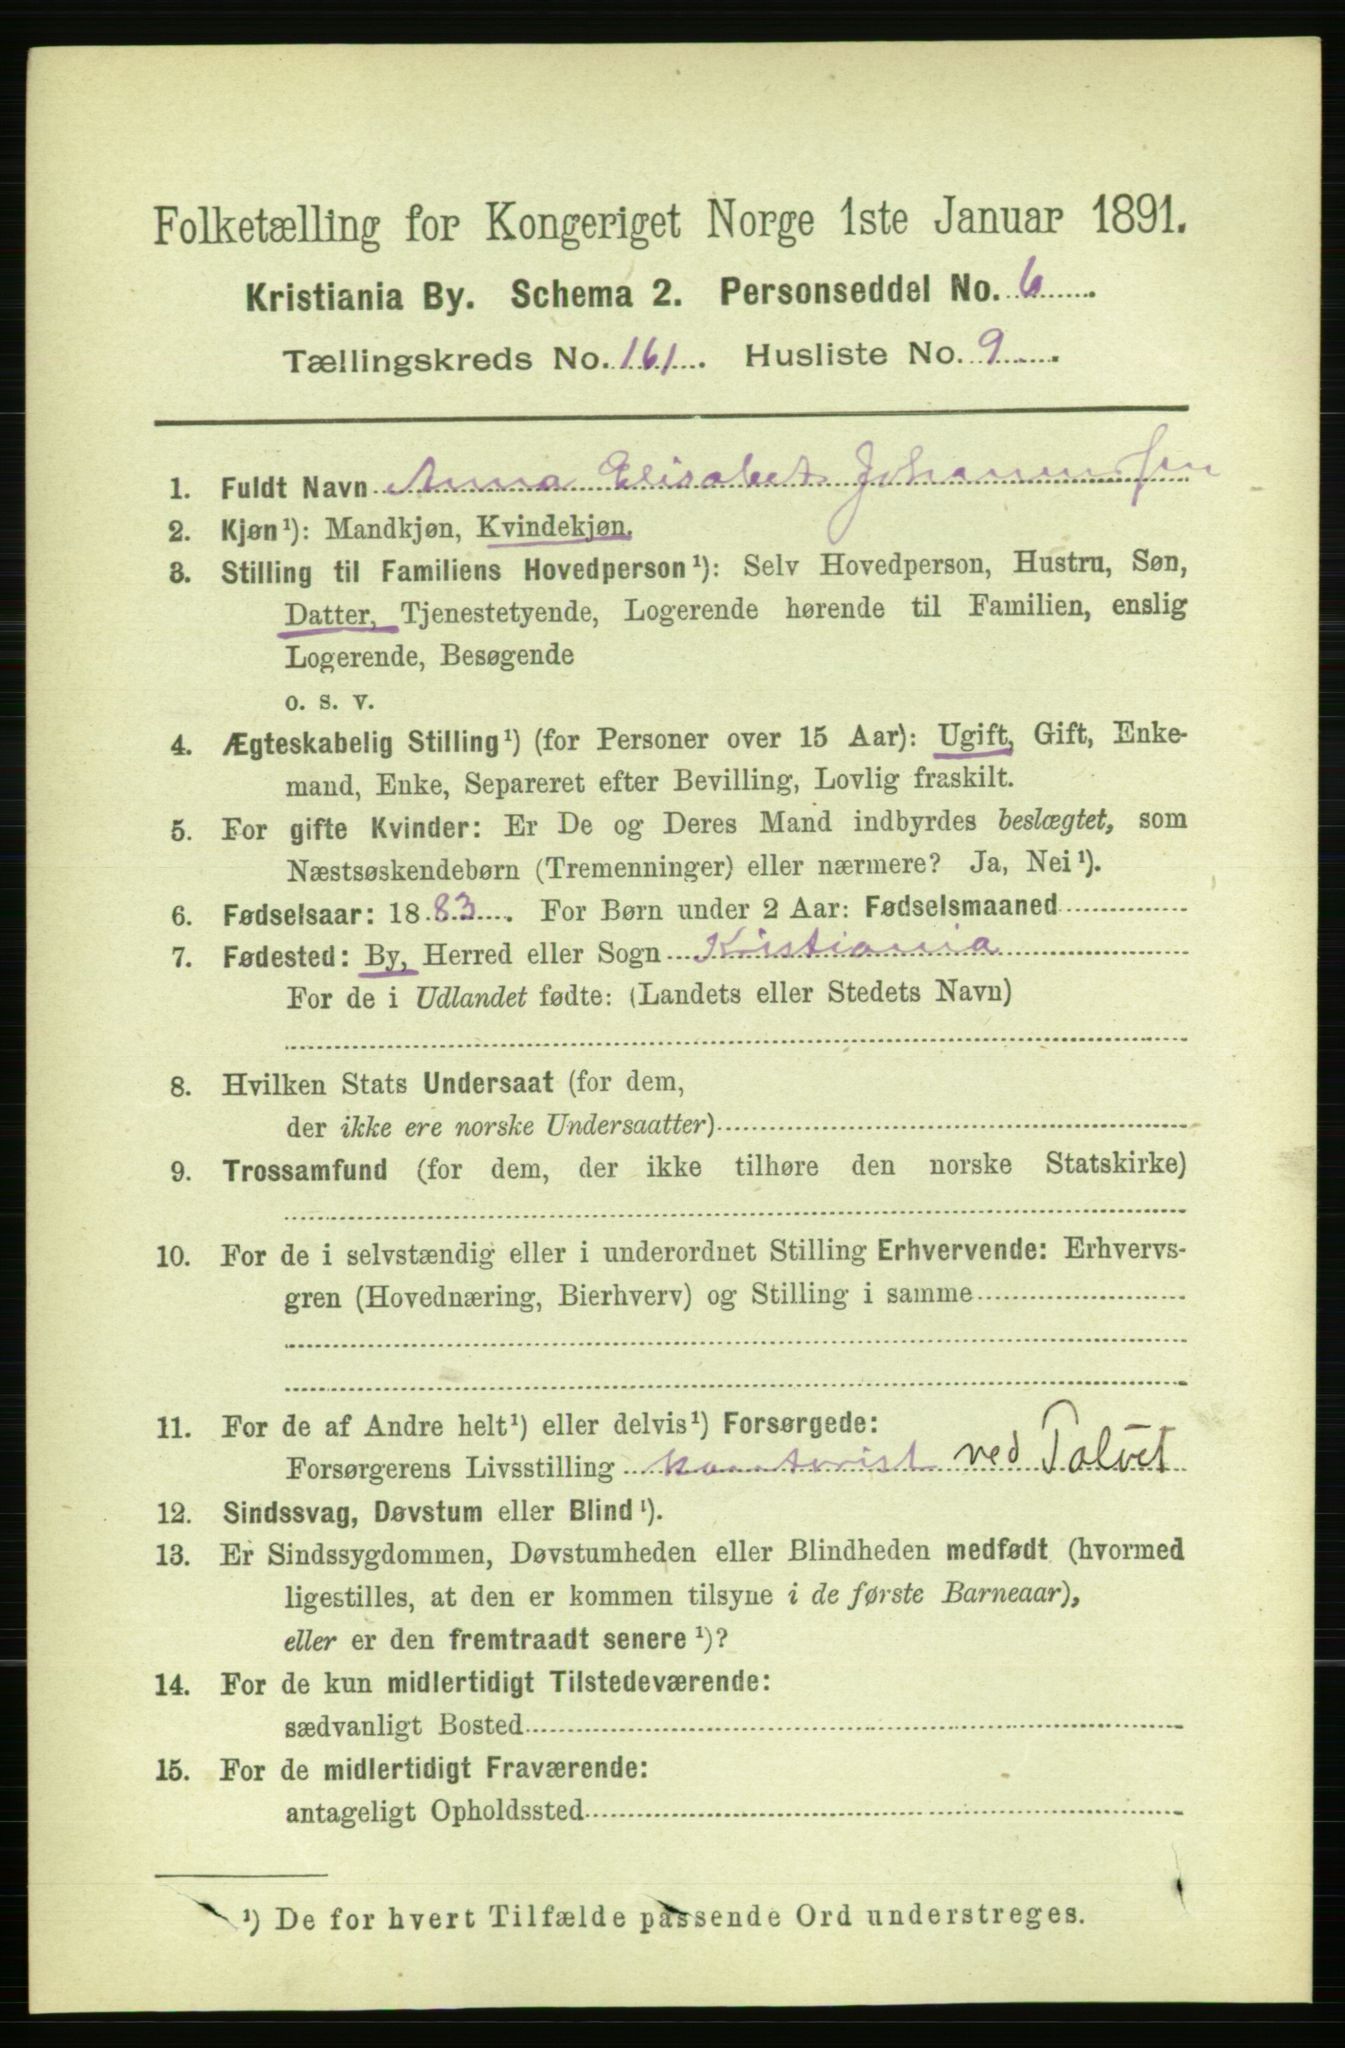 Folketælling for Kongeriget Norge 1ste Januar 1891.
Kristiania By. Schema 2. Personseddel No. 6
Tællingskreds No. 161. Husliste No. 9
1. Fuldt Navn Anna Elisabet Johannesen
2. Kjøn¹): Mandkjøn, Kvindekjøn.
3. Stilling til Familiens Hovedperson¹): Selv Hovedperson, Hustru, Søn,
Datter, Tjenestetyende, Logerende hørende til Familien, enslig
Logerende, Besøgende
o. s. v.
4. Ægteskabelig Stilling¹) (for Personer over 15 Aar): Ugift, Gift, Enke-
mand, Enke, Separeret efter Bevilling, Lovlig fraskilt.
5. For gifte Kvinder: Er De og Deres Mand indbyrdes beslægtet, som
Næstsøskendebørn (Tremenninger) eller nærmere? Ja, Nei¹).
6. Fødselsaar: 1883. For Børn under 2 Aar: Fødselsmaaned
7. Fødested: By, Herred eller Sogn Kristiania
For de i Udlandet fødte: (Landets eller Stedets Navn)
8. Hvilken Stats Undersaat (for dem,
der ikke ere norske Undersaatter)
9. Trossamfund (for dem, der ikke tilhøre den norske Statskirke)
10. For de i selvstændig eller i underordnet Stilling Erhvervende: Erhvervs-
gren (Hovednæring, Bierhverv) og Stilling i samme
11. For de af Andre helt¹) eller delvis¹) Forsørgede:
Forsørgerens Livsstilling kontorist ved
12. Sindssvag, Døvstum eller Blind¹).
13. Er Sindssygdommen, Døvstumheden eller Blindheden medfødt (hvormed
ligestilles, at den er kommen tilsyne i de første Barneaar),
eller er den fremtraadt senere¹)?
14. For de kun midlertidigt Tilstedeværende:
sædvanligt Bosted
15. For de midlertidigt Fraværende:
antageligt Opholdssted
¹) De for hvert Tilfælde passende Ord understreges.